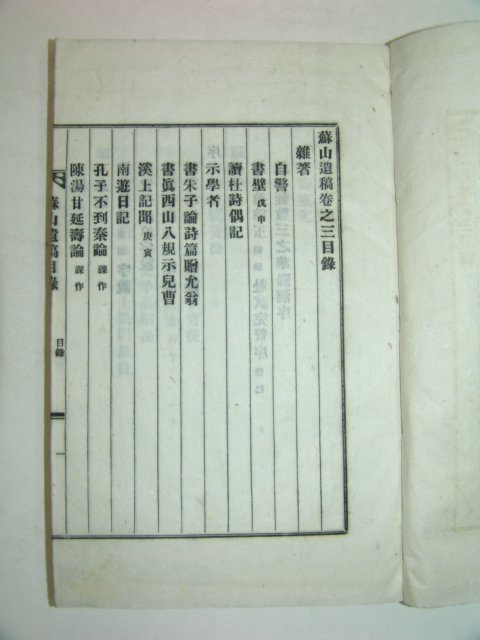 蘇山遺稿卷之三目錄
雜著
自警
書壁 戊申
讀杜詩偶記
示學者
書朱子論詩篇贈尤翁
書眞西山八規示兒曹
溪上記聞 庚寅
南遊日記
孔子不到秦論 課作
陳湯甘延壽論 課作
蘇山遺稿目錄
目錄
一